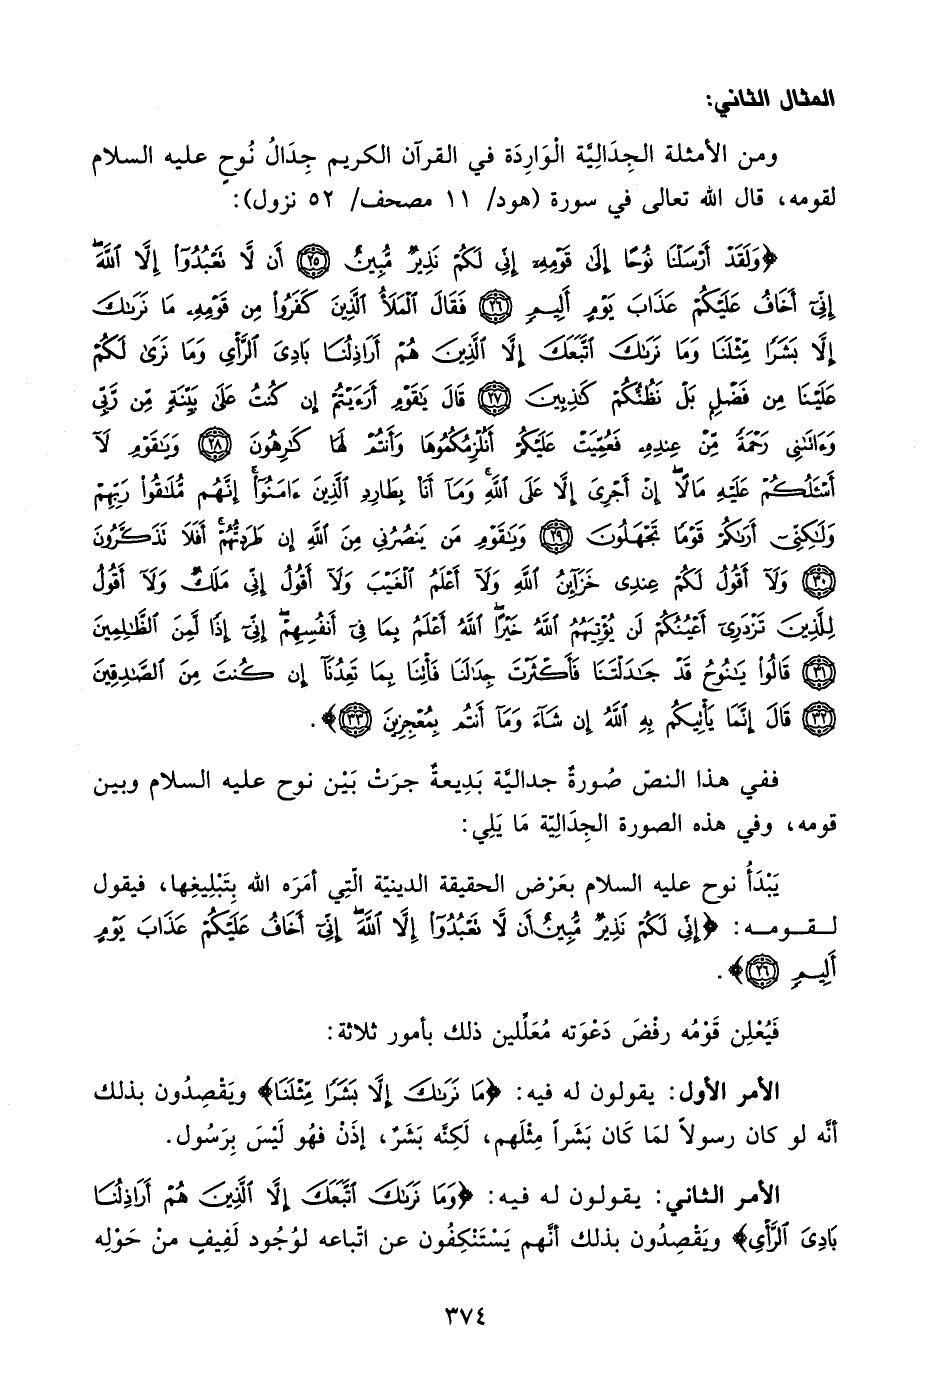 المثال الثاني:
ومن الأمثلة الجِدَاليَّة الْوَارِدَة في القرآن الكريم جِدَالُ نُوحٍ عليه السلام
لقومه، قال الله تعالى في سورة (هود/ ١١ مصحف/ ٥٢ نزول):
﴿وَلَقَدْ أَرْسَلْنَا نُوحًا إِلَىٰ قَوْمِهِۦ إِنِّي لَكُمْ نَذِيرٌ مُّبِينٌ ۝٢٥ أَن لَّا تَعْبُدُوٓا۟ إِلَّا ٱللَّهَ ۖ
إِنِّىٓ أَخَافُ عَلَيْكُمْ عَذَابَ يَوْمٍ أَلِيمٍ ۝٢٦ فَقَالَ ٱلْمَلَأُ ٱلَّذِينَ كَفَرُوا۟ مِن قَوْمِهِۦ مَا نَرَىٰكَ
إِلَّا بَشَرًا مِّثْلَنَا وَمَا نَرَىٰكَ ٱتَّبَعَكَ إِلَّا ٱلَّذِينَ هُمْ أَرَاذِلُنَا بَادِىَ ٱلرَّأْىِ وَمَا نَرَىٰ لَكُمْ
عَلَيْنَا مِن فَضْلٍۭ بَلْ نَظُنُّكُمْ كَـٰذِبِينَ ۝٢٧ قَالَ يَـٰقَوْمِ أَرَءَيْتُمْ إِن كُنتُ عَلَىٰ بَيِّنَةٍ مِّن رَّبِّى
وَءَاتَىٰنِى رَحْمَةً مِّنْ عِندِهِۦ فَعُمِّيَتْ عَلَيْكُمْ أَنُلْزِمُكُمُوهَا وَأَنتُمْ لَهَا كَـٰرِهُونَ ۝٢٨ وَيَـٰقَوْمِ لَآ
أَسْـَٔلُكُمْ عَلَيْهِ مَالًا ۖ إِنْ أَجْرِىَ إِلَّا عَلَى ٱللَّهِ ۚ وَمَآ أَنَا۠ بِطَارِدِ ٱلَّذِينَ ءَامَنُوٓا۟ ۚ إِنَّهُم مُّلَـٰقُوا۟ رَبِّهِمْ
وَلَـٰكِنِّىٓ أَرَىٰكُمْ قَوْمًا تَجْهَلُونَ ۝٢٩ وَيَـٰقَوْمِ مَن يَنصُرُنِى مِنَ ٱللَّهِ إِن طَرَدتُّهُمْ ۚ أَفَلَا تَذَكَّرُونَ
۝٣٠ وَلَآ أَقُولُ لَكُمْ عِندِى خَزَآئِنُ ٱللَّهِ وَلَآ أَعْلَمُ ٱلْغَيْبَ وَلَآ أَقُولُ إِنِّى مَلَكٌ وَلَآ أَقُولُ
لِلَّذِينَ تَزْدَرِىٓ أَعْيُنُكُمْ لَن يُؤْتِيَهُمُ ٱللَّهُ خَيْرًا ۖ ٱللَّهُ أَعْلَمُ بِمَا فِىٓ أَنفُسِهِمْ ۖ إِنِّىٓ إِذًا لَّمِنَ ٱلظَّـٰلِمِينَ
۝٣١ قَالُوا۟ يَـٰنُوحُ قَدْ جَـٰدَلْتَنَا فَأَكْثَرْتَ جِدَٰلَنَا فَأْتِنَا بِمَا تَعِدُنَآ إِن كُنتَ مِنَ ٱلصَّـٰدِقِينَ
۝٣٢ قَالَ إِنَّمَا يَأْتِيكُم بِهِ ٱللَّهُ إِن شَآءَ وَمَآ أَنتُم بِمُعْجِزِينَ ۝٣٣﴾.
ففي هذا النصّ صُورةٌ جداليَّة بَدِيعةٌ جرَتْ بَيْن نوح عليه السلام وبين
قومه، وفي هذه الصورة الجِدَاليّة مَا يَلِي:
يَبْدَأُ نوح عليه السلام بعَرْض الحقيقة الدينيّة الّتِي أمَرَه الله بِتَبْلِيغِها، فيقول
لـقـومـه: ﴿إِنِّي لَكُمْ نَذِيرٌ مُّبِينٌ أَن لَّا تَعْبُدُوٓا۟ إِلَّا ٱللَّهَ ۖ إِنِّىٓ أَخَافُ عَلَيْكُمْ عَذَابَ يَوْمٍ
أَلِيمٍ ۝٢٦﴾.
فَيُعْلِن قَوْمُه رفْضَ دَعْوَته مُعَلِّلين ذلك بأمور ثلاثة:
الأمر الأول: يقولون له فيه: ﴿مَا نَرَىٰكَ إِلَّا بَشَرًا مِّثْلَنَا﴾ ويَقْصِدُون بذلك
أنَّه لو كان رسولاً لمَا كَان بَشَراً مِثْلَهم، لَكِنَّه بَشَرٌ، إذَنْ فهُو لَيْسَ بِرَسُول.
الأمر الثاني: يقولون له فيه: ﴿وَمَا نَرَىٰكَ ٱتَّبَعَكَ إِلَّا ٱلَّذِينَ هُمْ أَرَاذِلُنَا
بَادِىَ ٱلرَّأْىِ﴾ ويَقْصِدُون بذلك أنَّهم يَسْتَنْكِفُون عن اتباعه لوُجُود لَفِيفٍ منْ حَوْلِه
٣٧٤